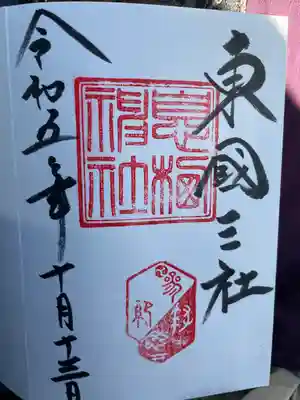 東國三社
息栖
神社
令和五年十月十三日